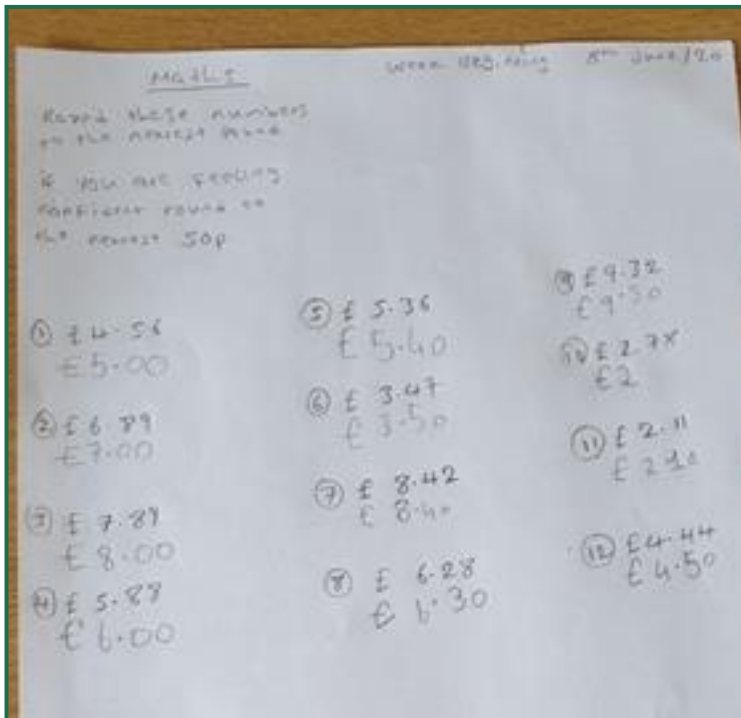 Maths
Week beginning 8th June/20
Round these numbers
to the nearest pound
if you are feeling
confident round to
the nearest 50p
① £4.56
£5.00
② £6.89
£7.00
③ £7.89
£8.00
④ £5.88
£6.00
⑤ £5.36
£5.40
⑥ £3.47
£3.50
⑦ £8.42
£8.40
⑧ £6.28
£6.30
⑨ £9.32
£9.50
⑩ £2.78
£2
⑪ £2.11
£2 10
⑫ £4.44
£4.50